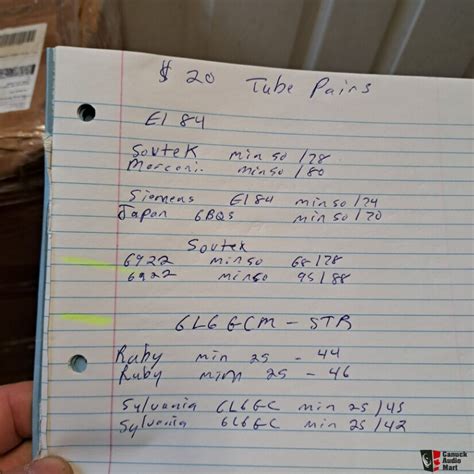 $ 20 Tube Pairs
El 84
Sovtek min 50 / 78
Marconi min 50 / 80
Siemens El 84 min 50 / 74
Japan 6BQ5 min 50 / 70
Sovtek
6922 min 50 68 / 78
6922 min 50 95 / 88
6L6 GCM - STR
Ruby min 25 - 44
Ruby min 25 - 46
Sylvania 6L6GC min 25 / 45
Sylvania 6L6GC min 25 / 42
Canuck
Audio
Mart